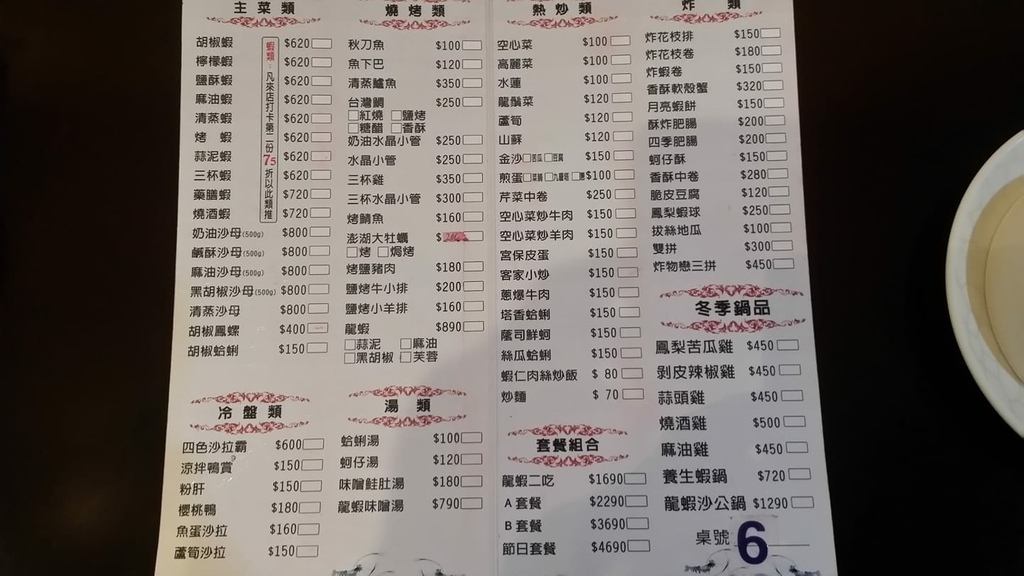 主菜類
胡椒蝦 $620
檸檬蝦 $620
鹽酥蝦 $620
麻油蝦 $620
清蒸蝦 $620
烤 蝦 $620
蒜泥蝦 $620
三杯蝦 $620
藥膳蝦 $720
燒酒蝦 $720
蝦類：凡來店打卡第二份75折以此類推
奶油沙母(500g) $800
鹹酥沙母(500g) $800
麻油沙母(500g) $800
黑胡椒沙母(500g) $800
清蒸沙母 $800
胡椒鳳螺 $400
胡椒蛤蜊 $150
冷盤類
四色沙拉霸 $600
涼拌鴨賞 $150
粉肝 $150
櫻桃鴨 $180
魚蛋沙拉 $160
蘆筍沙拉 $150
燒烤類
秋刀魚 $100
魚下巴 $120
清蒸鱸魚 $350
台灣鯛 $250
紅燒 鹽烤
糖醋 香酥
奶油水晶小管 $250
水晶小管 $250
三杯雞 $350
三杯水晶小管 $300
烤鯖魚 $160
澎湖大牡蠣 $
烤 焗烤
烤鹽豬肉 $180
鹽烤牛小排 $200
鹽烤小羊排 $160
龍蝦 $890
蒜泥 麻油
黑胡椒 芙蓉
湯類
蛤蜊湯 $100
蚵仔湯 $120
味噌鮭肚湯 $180
龍蝦味噌湯 $790
熱炒類
空心菜 $100
高麗菜 $100
水蓮 $100
龍鬚菜 $120
蘆筍 $120
山蘇 $120
金沙 苦瓜 豆腐 $150
煎蛋 菜脯 九層塔 $100
芹菜中卷 $250
空心菜炒牛肉 $150
空心菜炒羊肉 $150
宮保皮蛋 $150
客家小炒 $150
蔥爆牛肉 $150
塔香蛤蜊 $150
蔭司鮮蚵 $150
絲瓜蛤蜊 $150
蝦仁肉絲炒飯 $ 80
炒麵 $ 70
套餐組合
龍蝦二吃 $1690
A套餐 $2290
B套餐 $3690
節日套餐 $4690
炸 類
炸花枝排 $150
炸花枝卷 $180
炸蝦卷 $150
香酥軟殼蟹 $320
月亮蝦餅 $150
酥炸肥腸 $200
四季肥腸 $200
蚵仔酥 $150
香酥中卷 $280
脆皮豆腐 $120
鳳梨蝦球 $250
拔絲地瓜 $100
雙拼 $300
炸物戀三拼 $450
冬季鍋品
鳳梨苦瓜雞 $450
剝皮辣椒雞 $450
蒜頭雞 $450
燒酒雞 $500
麻油雞 $450
養生蝦鍋 $720
龍蝦沙公鍋 $1290
桌號 6